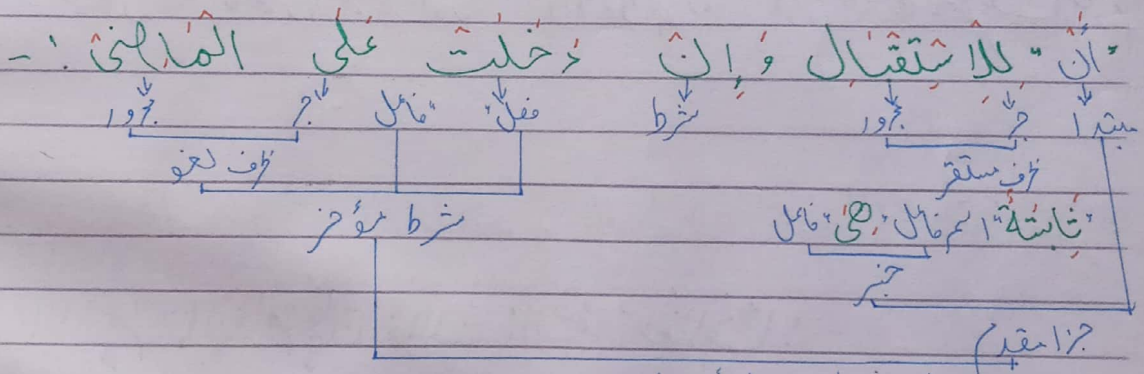 "أَنْ" لِلْاِسْتِقْبَالِ وَإِنْ دَخَلَتْ عَلَى الْمَاضِىْ :-
مبتدا جر مجرور شرط فعل "فاعل جر مجرور
ظرف مستقر ظرف لغو
"ثَابِتَةٌ" اسم فاعل "هِىَ" فاعل شرط مؤخر
خبر
جزا مقدم